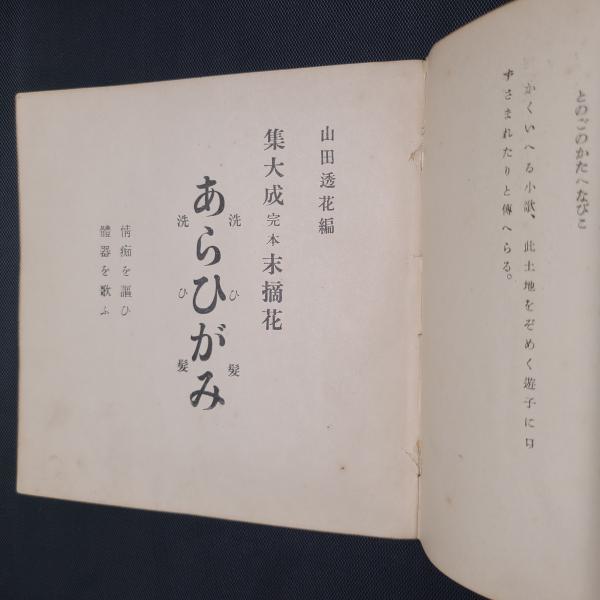 とのごのかたへなびこ
かくいへる小歌、此土地をぞめく遊子に口
ずさまれたりと傳へらる。
山田透花編
集大成完本末摘花
洗ひ髪
あらひがみ
洗ひ髪
情痴を謳ひ
體器を歌ふ